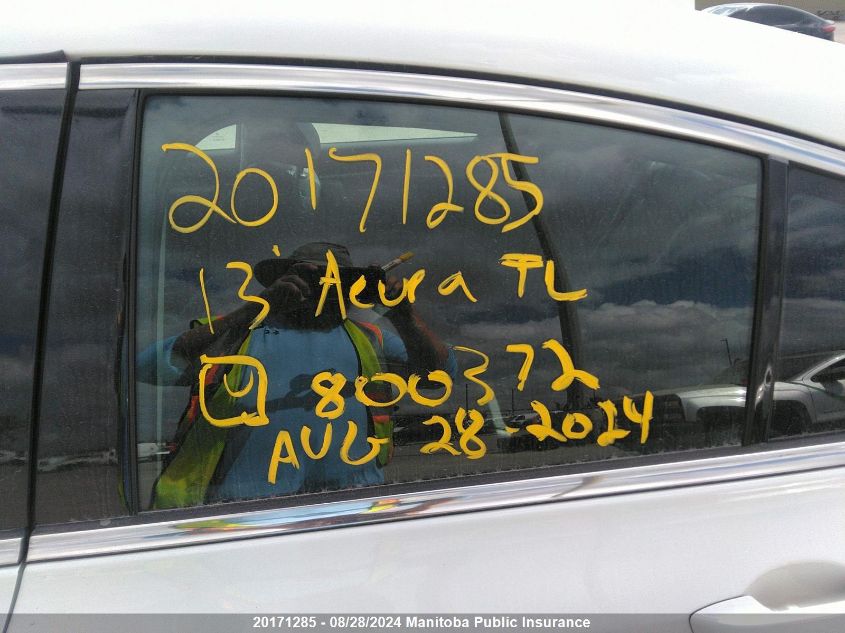 20171285
13' Acura TL
800372
AUG 28-2024
20171285 - 08/28/2024 Manitoba Public Insurance